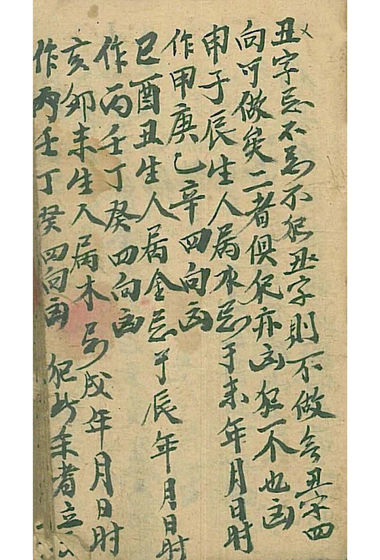 丑字忌不為不犯丑字則不做為丑字四
向可做矣二者俱犯亦凶犯一不也凶
申子辰生人屬水忌于未年月日时
作甲庚乙辛四向凶
巳酉丑生人屬金忌于辰年月日时
作丙壬丁癸四向凶
亥卯未生人屬木忌戌年月日时
作丙壬丁癸四向凶 犯此年者立